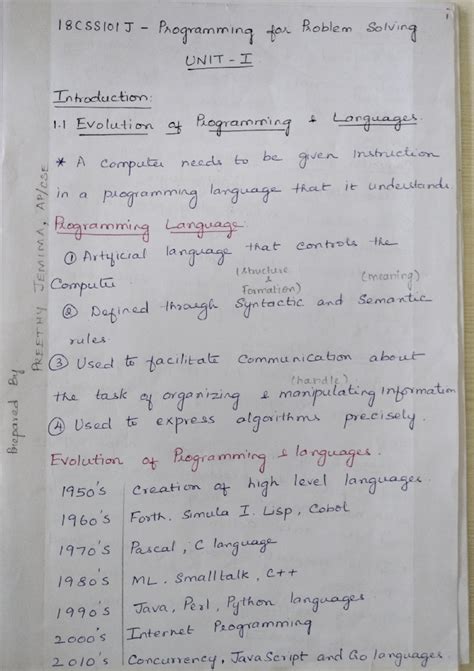 18CSS101J - Programming for Problem Solving
UNIT - I
Introduction:
1.1 Evolution of Programming & Languages.
* A computer needs to be given Instruction
in a programming language that it understands
Programming Language
① Artificial language that controls the
Computer
(structure
&
Formation)
(meaning)
② Defined through Syntactic and Semantic
rules.
③ Used to facilitate Communication about
(handle)
the task of organizing & manipulating Information
④ Used to express algorithms precisely.
Evolution of Programming & languages.
1950's Creation of high level languages.
1960's Forth. Simula I. Lisp, Cobol
1970's Pascal, C language
1980's ML. Smalltalk, C++
1990's Java, Perl, Python languages
2000's Internet Programming
2010's Concurrency, JavaScript and Go languages.
Prepared By
PREETHY JEMIMA, AP/CSE